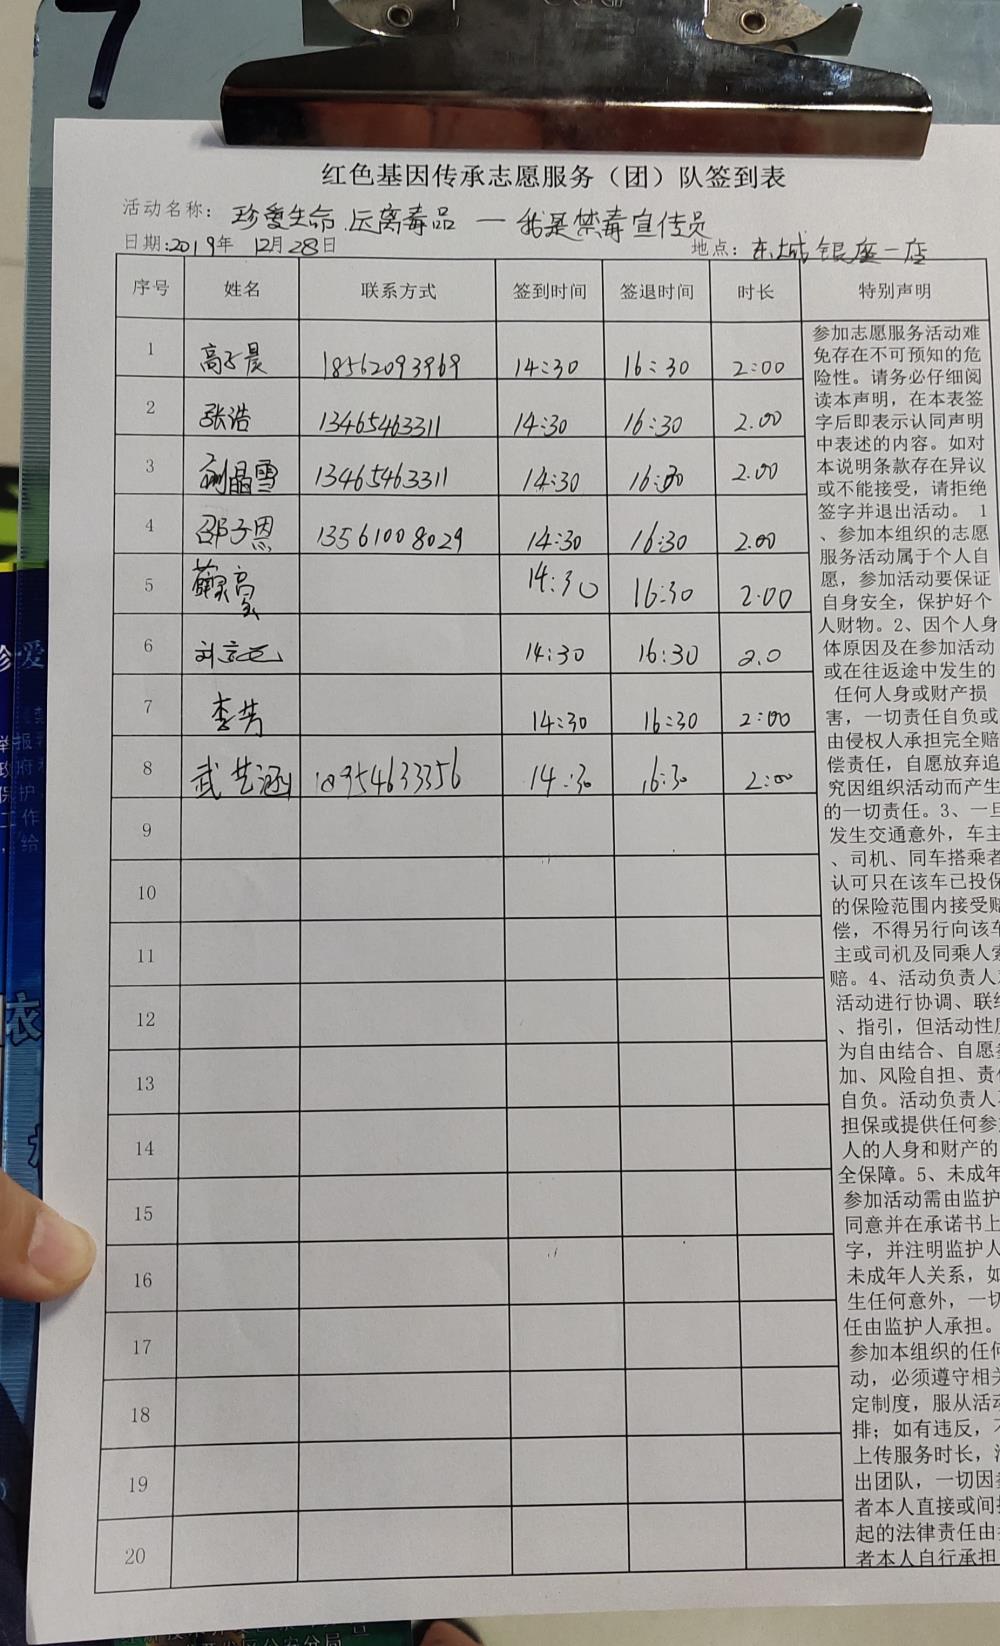 7
红色基因传承志愿服务（团）队签到表
活动名称：珍爱生命.远离毒品 — 我是禁毒宣传员
日期:2019年 12月28日 地点：东城银座一店
序号 姓名 联系方式 签到时间 签退时间 时长 特别声明
1 高子晨 18562093969 14:30 16:30 2:00
2 张浩 13465463311 14:30 16:30 2.00
3 刘晶雪 13465463311 14:30 16:30 2.00
4 邵子恩 13561008029 14:30 16:30 2.00
5 14:30 16:30 2.00
6 14:30 16:30 2.0
7 李芳 14:30 16:30 2:00
8 武艺涵 18954633356 14:30 16:30 2:00
9
10
11
12
13
14
15
16
17
18
19
20
参加志愿服务活动难
免存在不可预知的危
险性。请务必仔细阅
读本声明，在本表签
字后即表示认同声明
中表述的内容。如对
本说明条款存在异议
或不能接受，请拒绝
签字并退出活动。 1
、参加本组织的志愿
服务活动属于个人自
愿，参加活动要保证
自身安全，保护好个
人财物。2、因个人身
体原因及在参加活动
或在往返途中发生的
任何人身或财产损
害，一切责任自负或
由侵权人承担完全赔
偿责任，自愿放弃追
究因组织活动而产生
的一切责任。3、一旦
发生交通意外，车主
、司机、同车搭乘者
认可只在该车已投保
的保险范围内接受赔
偿，不得另行向该车
主或司机及同乘人索
赔。4、活动负责人
活动进行协调、联络
、指引，但活动性质
为自由结合、自愿参
加、风险自担、责任
自负。活动负责人不
担保或提供任何参加
人的人身和财产的
全保障。5、未成年
参加活动需由监护
同意并在承诺书上
字，并注明监护人
未成年人关系，如
生任何意外，一切
任由监护人承担。
参加本组织的任何
动，必须遵守相关
定制度，服从活动
排；如有违反，不
上传服务时长，
出团队，一切因
者本人直接或间接
起的法律责任由
者本人自行承担